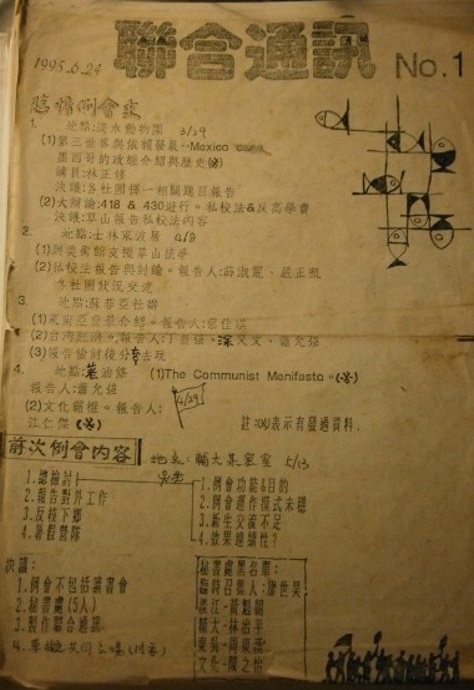 聯合通訊
1995.6.24
No.1
例會史
1. 地點:淡水動物園 3/29
(1)第三世界與依賴發展--Mexico case
墨西哥的政經介紹與歷史
講員:林正修
決議:各社團擇一相關題目報告
(2)大辯論:418 & 430遊行。私校法&反高學費
決議:草山報告私校法內容
2. 地點:士林東波居
(1)到美術館支援草山抗爭
(2)私校法報告與討論。報告人:薛淑麗、嚴正凱
各社團狀況交流
3. 地點:蘇菲亞社辦
(1)東南亞會景介紹。報告人:
(2)台灣經濟。報告人:
(3)報告檢討後分享去玩
4. 地點: (1)The Communist Menifasto。
報告人:蕭允
(2)文化霸權。報告人:
江仁傑
4/29
註: 表示有發過資料.
前次例會內容
地點:輔大 5/13
1.總檢討
2.報告對外工作
3.反核下鄉
4.暑假營隊
1.例會功能&目的
2.例會運作模式未穩
3.新生交流不足
4.效果連續性?
決議:
1.例會不包括讀書會
2.秘書處(5人)
3.製作聯合通訊
4.草擬共同立場
秘書處黑名單:
臨時召集人:陳世昊
淡江-黃
輔大-林治平
東吳-周
文化-陳之